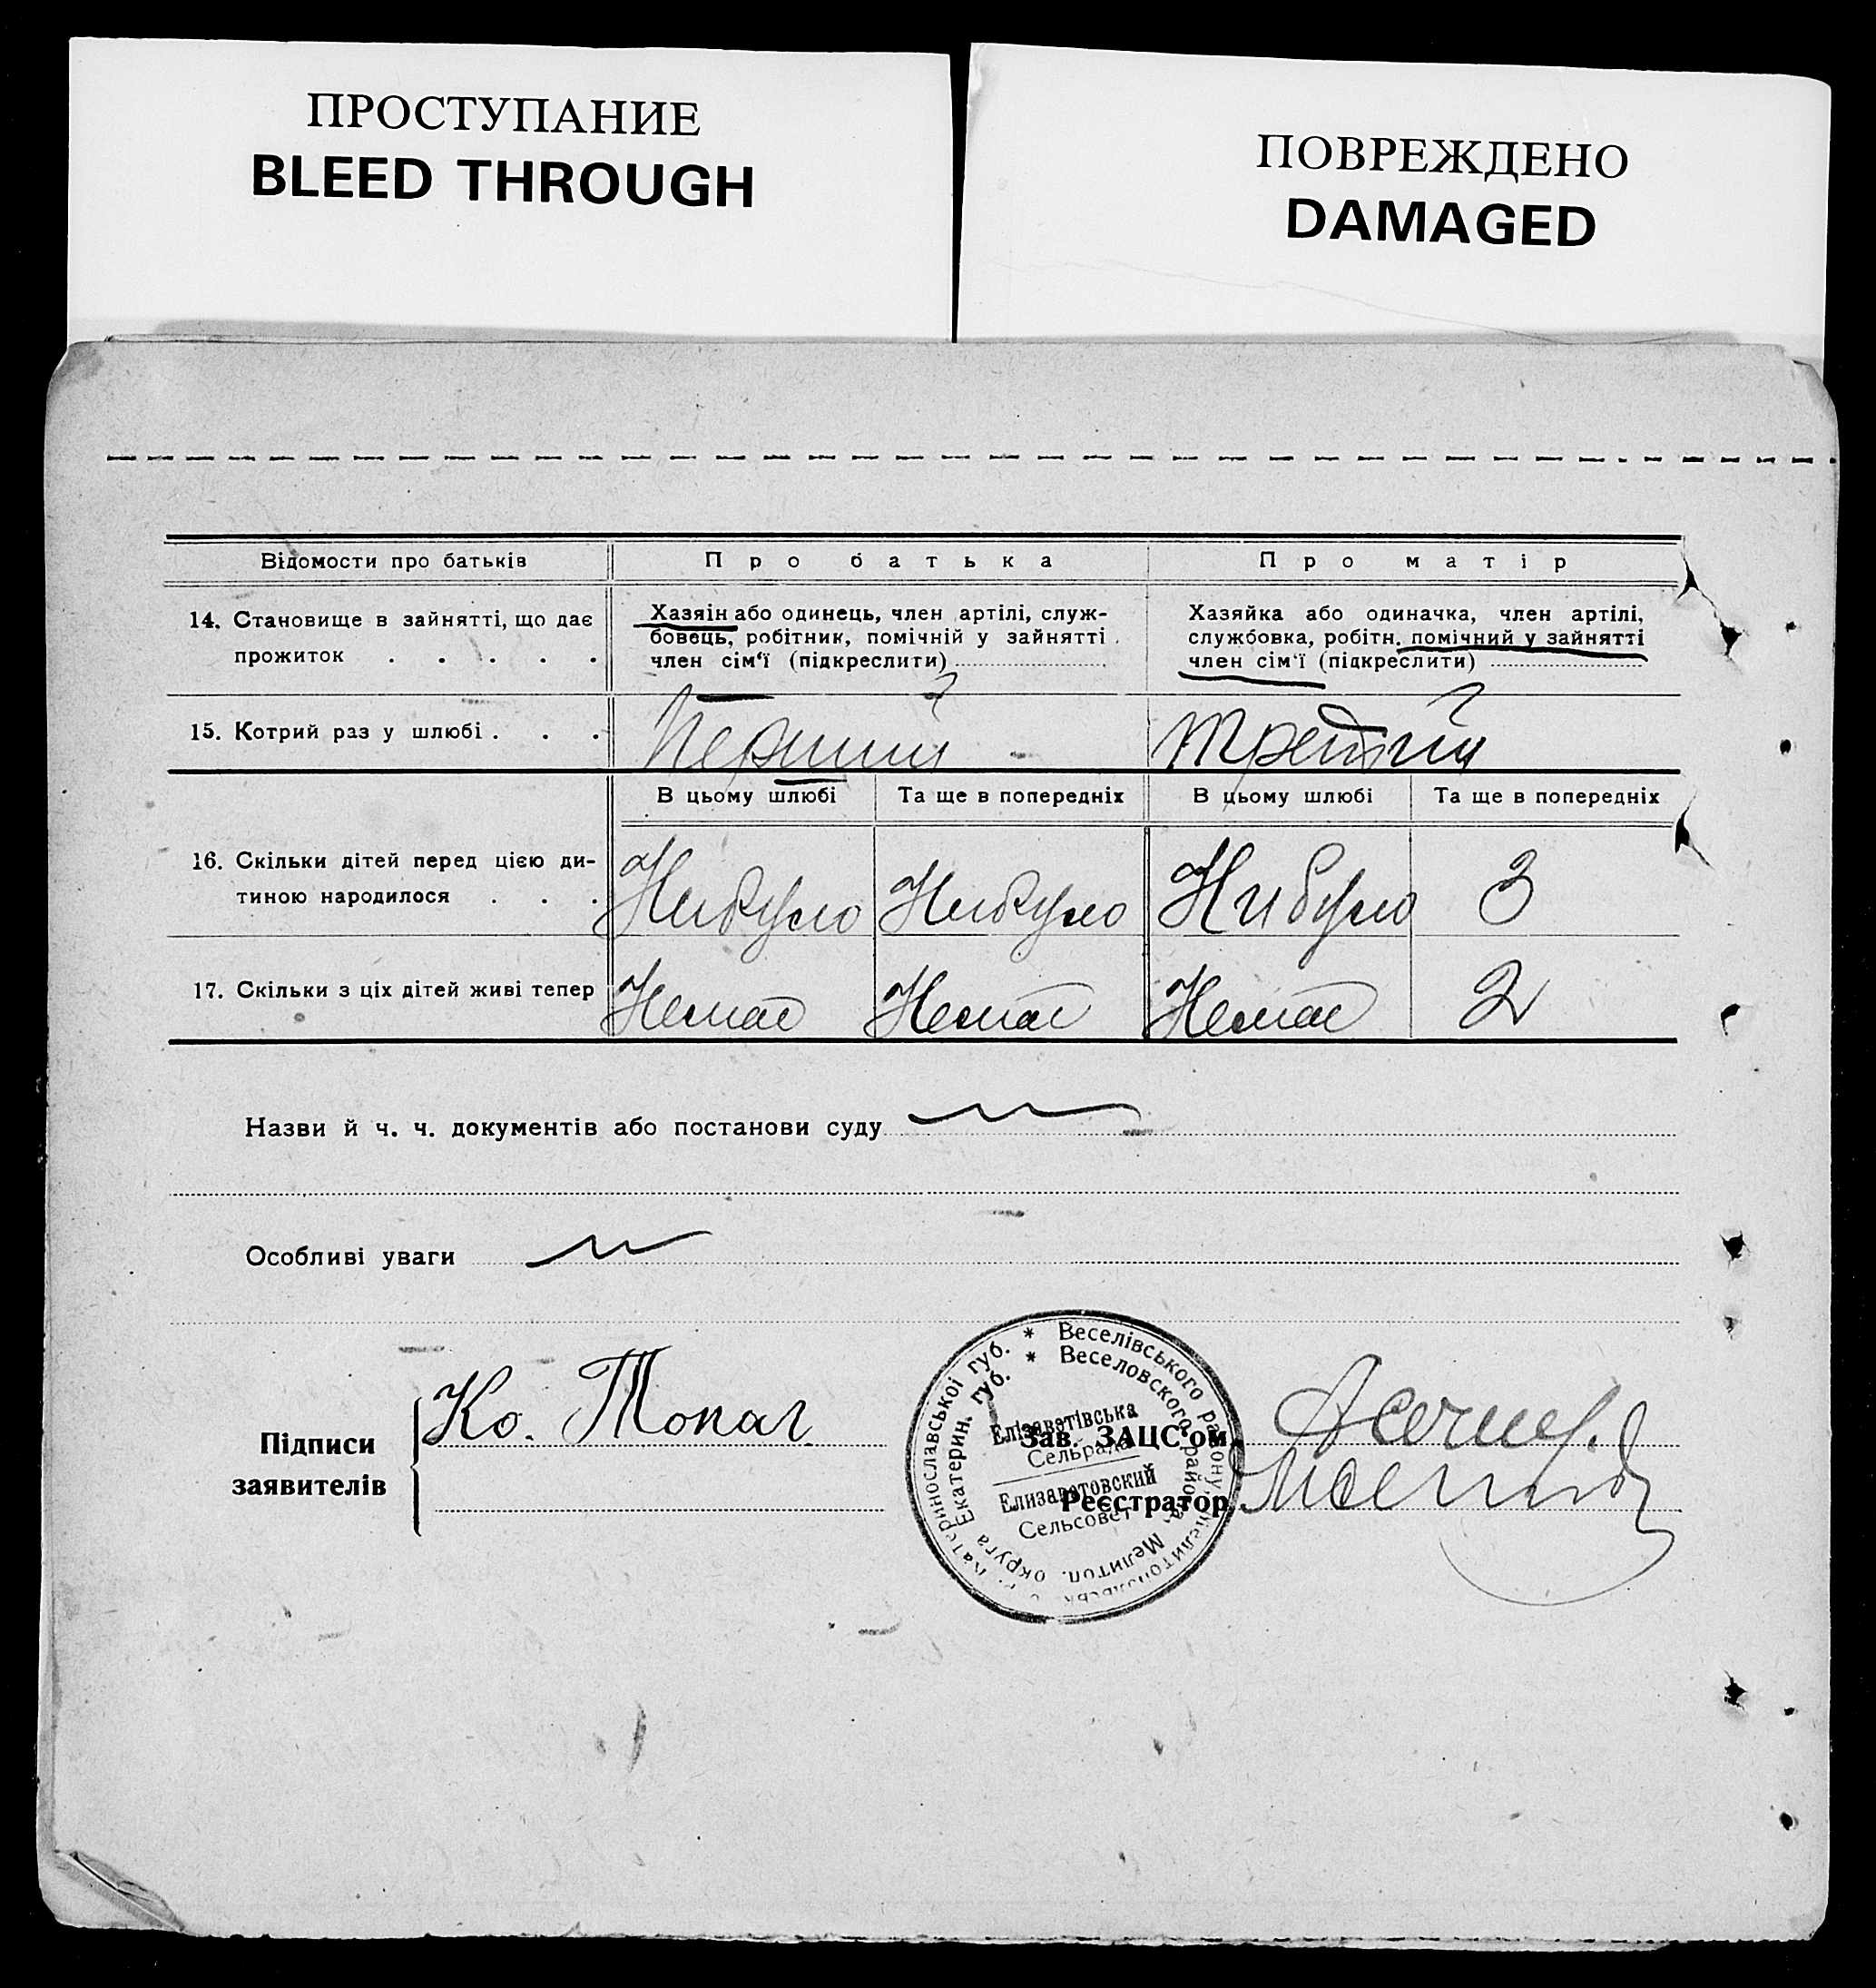 ПРОСТУПАНИЕ
BLEED THROUGH
ПОВРЕЖДЕНО
DAMAGED
Відомости про батьків
Про батька
Про матір
14. Становище в зайнятті, що дає
прожиток . . . . .
Хазяін або одинець, член артілі, служ-
бовець, робітник, помічній у зайнятті
член сім'ї (підкреслити)
Хазяйка або одиначка, член артілі,
службовка, робітн. помічний у зайнятті
член сім'ї (підкреслити)
15. Котрий раз у шлюбі . . .
Перший
третій
В цьому шлюбі
Та ще в попередніх
В цьому шлюбі
Та ще в попередніх
16. Скільки дітей перед цією ди-
тиною народилося . . .
Нибуло
Нибуло
Нибуло
3
17. Скільки з ціх дітей живі тепер
Немає
Немає
Немає
2
Назви й ч. ч. документів або постанови суду
Особливі уваги
Підписи
заявителів
Ко. Топал
Зав. ЗАЦС'ом
Реєстратор
* Веселівського району Мелитопольськ
Катеринославської губ.
* Веселовского района, Мелитоп. округа Екатерин. губ.
Елізаветівська
Сельрада
Елизаветовский
Сельсовет